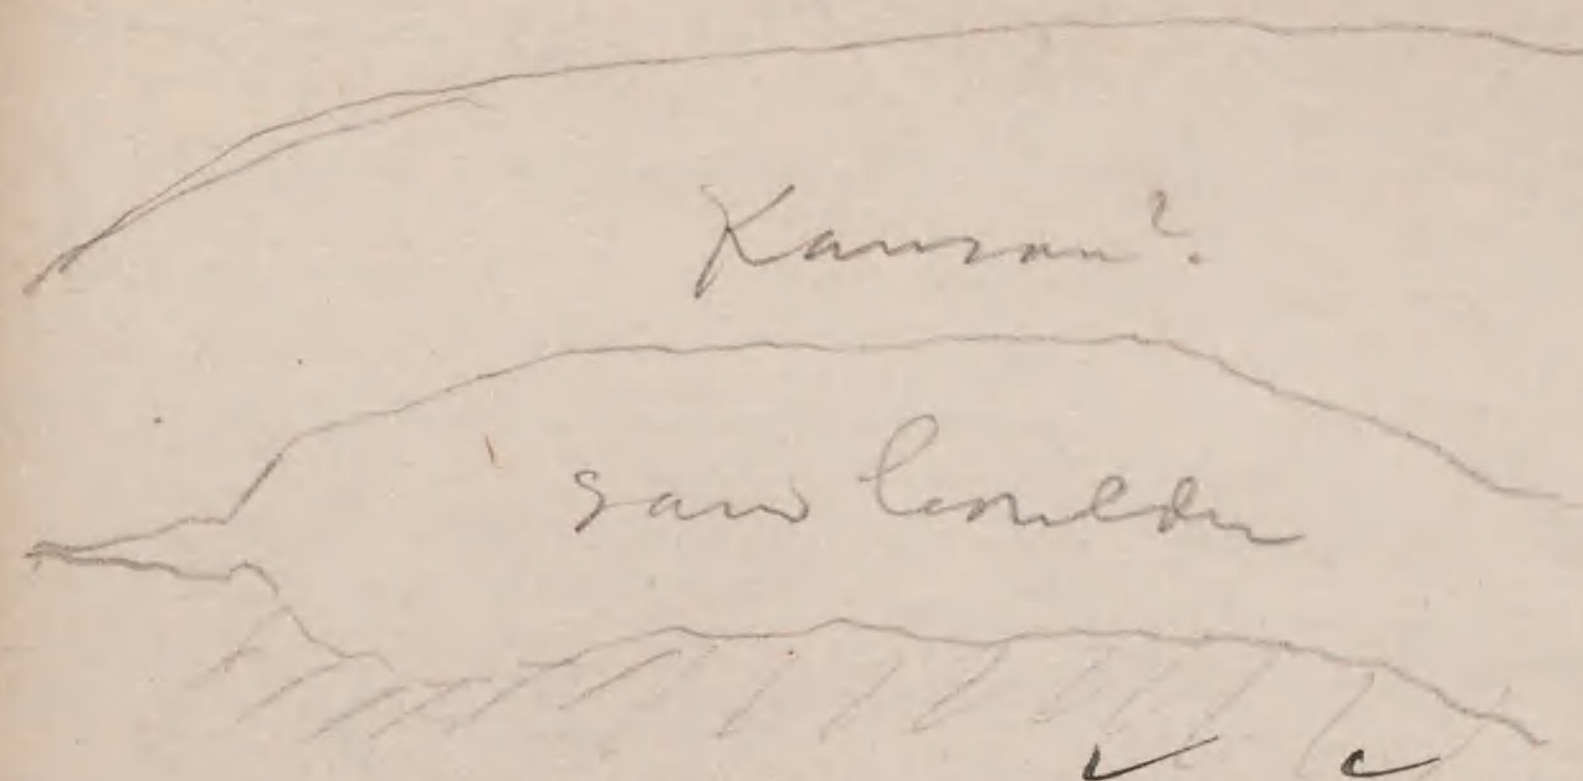 Kansan?
sand boulder